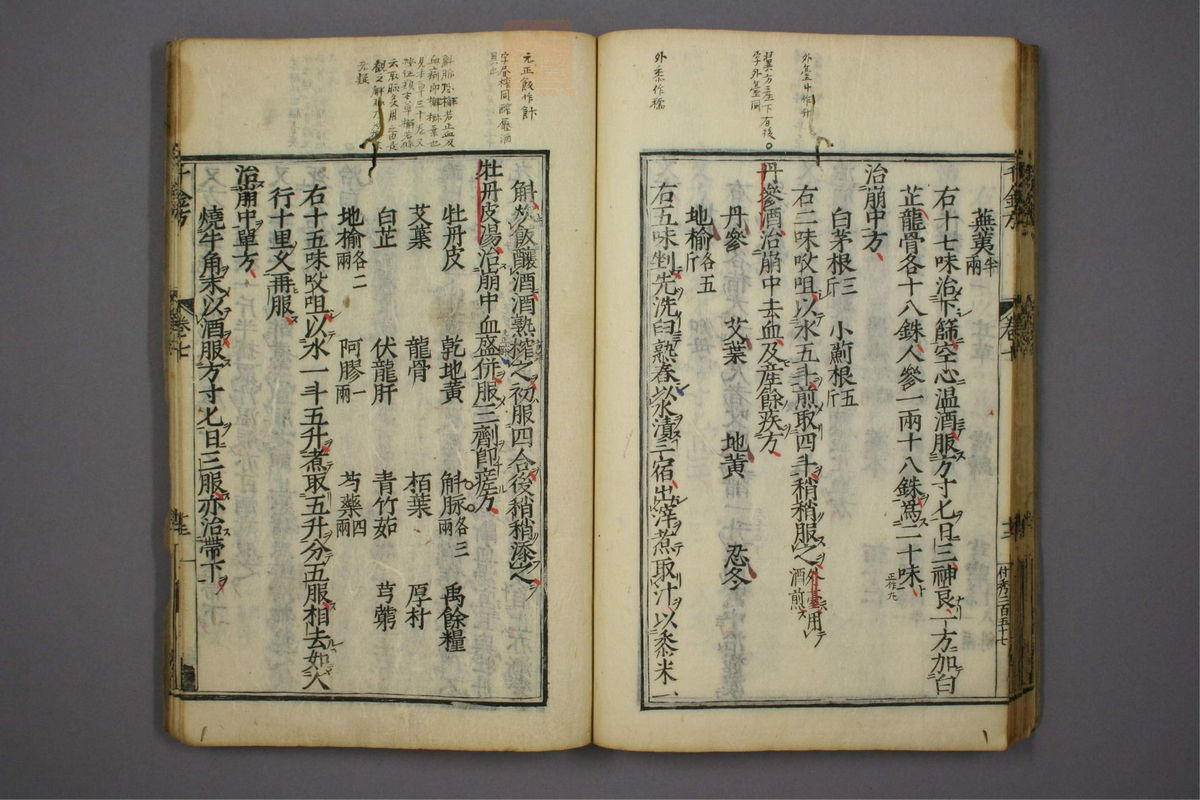 外臺斗作升
翼方產下有後
字外臺同
外黍作穤
蕪荑半兩
右十七味治下篩空心温酒服方寸匕日三神良一方加白
芷龍骨各十八銖人參一兩十八銖為二十味
正作九
治崩中方
白茅根三斤 小薊根五斤
右二味㕮咀以水五斗煎取四斗稍稍服之外臺用酒煎
丹參酒治崩中去血及產餘疾方
丹參 艾葉 地黃 忍冬
地榆各五斤
右五味剉先洗臼熟舂以水漬三宿出滓煮取汁以黍米一
千金方 卷七
元正飯作飰
斛炊飯釀酒酒熟搾之初服四合後稍稍添之
牡丹皮湯治崩中血盛併服三劑即瘥方
牡丹皮 乾地黃 斛脉各三兩 禹餘糧
艾葉 龍骨 栢葉 厚朴
白芷 伏龍肝 青竹茹 芎藭
地榆各二兩 阿膠一兩 芍藥四兩
右十五味㕮咀以水一斗五升煮取五升分五服相去如人
行十里又再服
治崩中單方
燒牛角末以酒服方寸匕日三服亦治帶下
千金方 卷七